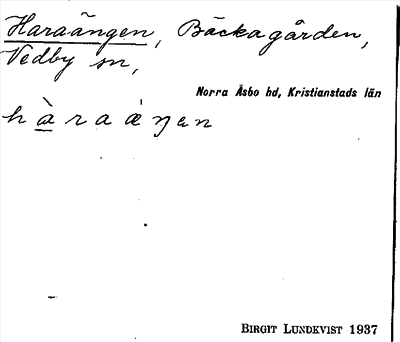 Haraängen, Bäckagården,
Vedby sn,
Norra Åsbo hd, Kristianstads län
h à̱ r a æ̀ ŋ e n
BIRGIT LUNDKVIST 1937